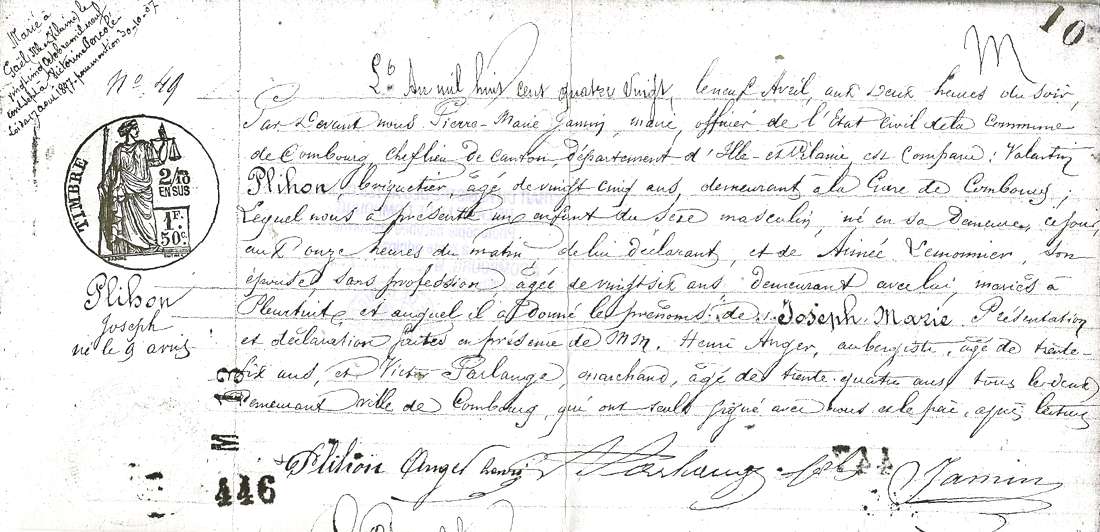 Marié à
Gaël (Ille et Vilaine) le
vingt
N° 49
TIMBRE
2/10
EN SUS
1F.
50c.
Plihon
Joseph
né le 9 avril
10
M
L'An mil huit cent quatre vingt, le neuf Avril, aux deux heures du soir,
Par Devant nous Pierre-Marie Jamin, maire, officier de l'Etat Civil de la Commune
de Combourg, chef lieu de Canton, département d'Ille-et-Vilaine, est comparu: Valentin
Plihon briquetier, âgé de vingt cinq ans, demeurant à la Gare de Combourg;
Lequel nous a présenté un enfant du sexe masculin, né en sa Demeure, ce jour,
aux onze heures du matin, de lui déclarant, et de Aimée Lemonnier, son
épouse, sans profession, âgée de vingt six ans, demeurant avec lui, mariés à
Pleurtuit, et auquel il a donné le prénoms: de Joseph Marie. Présentation
et déclaration faites en présence de MM. Henri Anger, aubergiste, âgé de trente-
six ans, et Victor Parlange, marchand, âgé de trente-quatre ans tous les deux
demeurant ville de Combourg, qui ont seuls signé avec nous et le père, après lecture
M 13
446
Plihon Anger henri Jamin